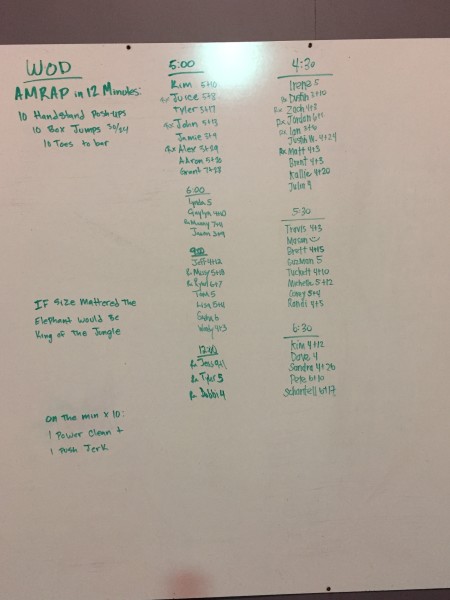 WOD
AMRAP in 12 Minutes:
10 Handstand Push-ups
10 Box Jumps 30/24
10 Toes to bar
IF Size Mattered The
Elephant Would Be
King of The Jungle
On The min x 10:
1 Power Clean +
1 Push Jerk
5:00
Kim 5+10
Juice 5+8
Tyler 5+17
John 5+13
Jamie 5+9
Rx Alex 5+29
Aaron 5+20
Grant 7+28
6:00
Lynda 5
Jason
9:00
Jeff 4+12
Rx Ryan 6+7
5
Lisa 5+4
6
Wendy 4+3
12:00
Rx Tyler 5
Rx Debbi 4
4:30
Irene 5
Dustin 3+10
Rx Zach 4+8
Rx Jordan
Rx Ian
Justin W. 4+24
Rx Matt 4+3
Brent 4+3
Kallie 4+20
Julia 9
5:30
Travis 4+3
Mason
Brett 4+15
Guzman 5
Tuckett 4+10
Michelle 5+12
Corey 5+4
Randi 4+5
6:30
Kim 4+12
Dave 4
Sandra 4+26
Pete 6+10